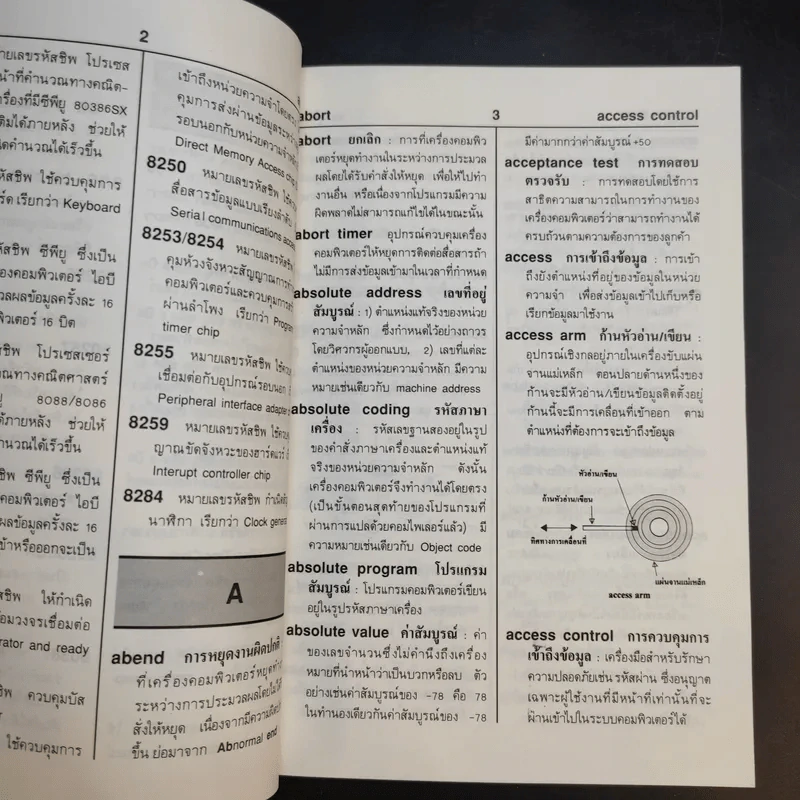 2
ายเลขรหัสชิพ โปรเซส
น้าที่คำนวณทางคณิต-
ครื่องที่มีซีพียู 80386SX
ติมได้ภายหลัง ช่วยให้
ดคำนวณได้เร็วขึ้น
หัสชิพ ใช้ควบคุมการ
ร์ด เรียกว่า Keyboard
รหัสชิพ ซีพียู ซึ่งเป็น
ของคอมพิวเตอร์ ไอบี
วลผลข้อมูลครั้งละ 16
พิวเตอร์ 16 บิต
ัสชิพ โปรเซสเซอร์
คำนวณทางคณิตศาสตร์
8088/8086
ด้ภายหลัง ช่วยให้
นวณได้เร็วขึ้น
ัสชิพ ซีพียู ซึ่งเป็น
คอมพิวเตอร์ ไอบี
ผลข้อมูลครั้งละ 16
ข้าหรือออกจะเป็น
สชิพ ให้กำเนิด
อมวงจรเชื่อมต่อ
rator and ready
ชิพ ควบคุมบัส
ใช้ควบคุมการ
เข้าถึงหน่วยความจำโดยตรง
คุมการส่งผ่านข้อมูลระหว่าง
รอบนอกกับหน่วยความจำหลัก
Direct Memory Access
8250 หมายเลขรหัสชิพ ใช้
สื่อสารข้อมูลแบบเรียงลำดับ
Serial communications
8253/8254 หมายเลขรหัสชิพ
คุมห้วงจังหวะสัญญาณการ
คอมพิวเตอร์และควบคุมการ
ผ่านลำโพง เรียกว่า
timer chip
8255 หมายเลขรหัสชิพ ใช้
เชื่อมต่อกับอุปกรณ์รอบนอก
Peripheral interface adapter
8259 หมายเลขรหัสชิพ
ญาณขัดจังหวะของฮาร์ดแวร์
Interupt controller chip
8284 หมายเลขรหัสชิพ กำเนิด
นาฬิกา เรียกว่า Clock
A
abend การหยุดงานผิดปกติ
ที่เครื่องคอมพิวเตอร์หยุด
ระหว่างการประมวลผลโดยไม่
สั่งให้หยุด เนื่องจากมีความ
ขึ้น ย่อมาจาก Abnormal end
abort 3 access control
abort ยกเลิก : การที่เครื่องคอมพิว
เตอร์หยุดทำงานในระหว่างการประมวล
ผลโดยได้รับคำสั่งให้หยุด เพื่อให้ไปทำ
งานอื่น หรือเนื่องจากโปรแกรมมีความ
ผิดพลาดไม่สามารถแก้ไขได้ในขณะนั้น
abort timer อุปกรณ์ควบคุมเครื่อง
คอมพิวเตอร์ให้หยุดการติดต่อสื่อสารถ้า
ไม่มีการส่งข้อมูลเข้ามาในเวลาที่กำหนด
absolute address เลขที่อยู่
สัมบูรณ์ : 1) ตำแหน่งแท้จริงของหน่วย
ความจำหลัก ซึ่งกำหนดไว้อย่างถาวร
โดยวิศวกรผู้ออกแบบ, 2) เลขที่แสดง
ตำแหน่งของหน่วยความจำหลัก มีความ
หมายเช่นเดียวกับ machine address
absolute coding รหัสภาษา
เครื่อง : รหัสเลขฐานสองอยู่ในรูป
ของคำสั่งภาษาเครื่องและตำแหน่งแท้
จริงของหน่วยความจำหลัก ดังนั้น
เครื่องคอมพิวเตอร์จึงทำงานได้โดยตรง
(เป็นขั้นตอนสุดท้ายของโปรแกรมที่
ผ่านการแปลด้วยคอมไพเลอร์แล้ว) มี
ความหมายเช่นเดียวกับ Object code
absolute program โปรแกรม
สัมบูรณ์ : โปรแกรมคอมพิวเตอร์เขียน
อยู่ในรูปรหัสภาษาเครื่อง
absolute value ค่าสัมบูรณ์ : ค่า
ของเลขจำนวนซึ่งไม่คำนึงถึงเครื่อง
หมายที่นำหน้าว่าเป็นบวกหรือลบ ตัว
อย่างเช่นค่าสัมบูรณ์ของ -78 คือ 78
ในทำนองเดียวกันค่าสัมบูรณ์ของ -78
มีค่ามากกว่าค่าสัมบูรณ์ +50
acceptance test การทดสอบ
ตรวจรับ : การทดสอบโดยใช้การ
สาธิตความสามารถในการทำงานของ
เครื่องคอมพิวเตอร์ว่าสามารถทำงานได้
ครบถ้วนตามความต้องการของลูกค้า
access การเข้าถึงข้อมูล : การเข้า
ถึงยังตำแหน่งที่อยู่ของข้อมูลในหน่วย
ความจำ เพื่อส่งข้อมูลเข้าไปเก็บหรือ
เรียกข้อมูลมาใช้งาน
access arm ก้านหัวอ่าน/เขียน :
อุปกรณ์เชิงกลอยู่ภายในเครื่องขับแผ่น
จานแม่เหล็ก ตอนปลายด้านหนึ่งของ
ก้านจะมีหัวอ่าน/เขียนข้อมูลติดตั้งอยู่
ก้านนี้จะมีการเคลื่อนที่เข้าออก ตาม
ตำแหน่งที่ต้องการจะเข้าถึงข้อมูล
หัวอ่าน/เขียน
ก้านหัวอ่าน/เขียน
ทิศทางการเคลื่อนที่
แผ่นจานแม่เหล็ก
access arm
access control การควบคุมการ
เข้าถึงข้อมูล : เครื่องมือสำหรับรักษา
ความปลอดภัยเช่น รหัสผ่าน ซึ่งอนุญาต
เฉพาะผู้ใช้งานที่มีหน้าที่เท่านั้นที่จะ
ผ่านเข้าไปในระบบคอมพิวเตอร์ได้